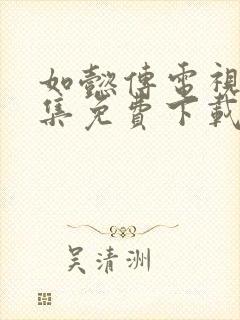 如懿傳電視
集免費下載
吴清洲